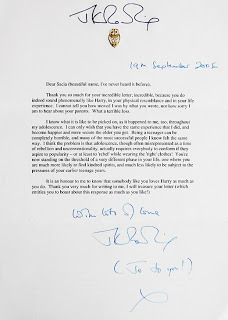 JK Rowling
19th September 2005
Dear Sacia (beautiful name, I've never heard it before),
Thank you so much for your incredible letter; incredible, because you do
indeed sound phenomenally like Harry, in your physical resemblance and in your life
experience. I cannot tell you how moved I was by what you wrote, nor how sorry I
am to hear about your parents. What a terrible loss.
I know what it is like to be picked on, as it happened to me, too, throughout
my adolescence. I can only wish that you have the same experience that I did, and
become happier and more secure the older you get. Being a teenager can be
completely horrible, and many of the most successful people I know felt the same
way. I think the problem is that adolescence, though often misrepresented as a time
of rebellion and unconventionality, actually requires everybody to conform if they
aspire to popularity - or at least to 'rebel' while wearing the 'right' clothes! You're
now standing on the threshold of a very different phase in your life, one where you
are much more likely to find kindred spirits, and much less likely to be subject to the
pressures of your earlier teenage years.
It is an honour to me to know that somebody like you loves Harry as much as
you do. Thank you very much for writing to me, I will treasure your letter (which
entitles you to boast about this response as much as you like!)
With lots of love
JK Rowling
(Jo to you!)
X